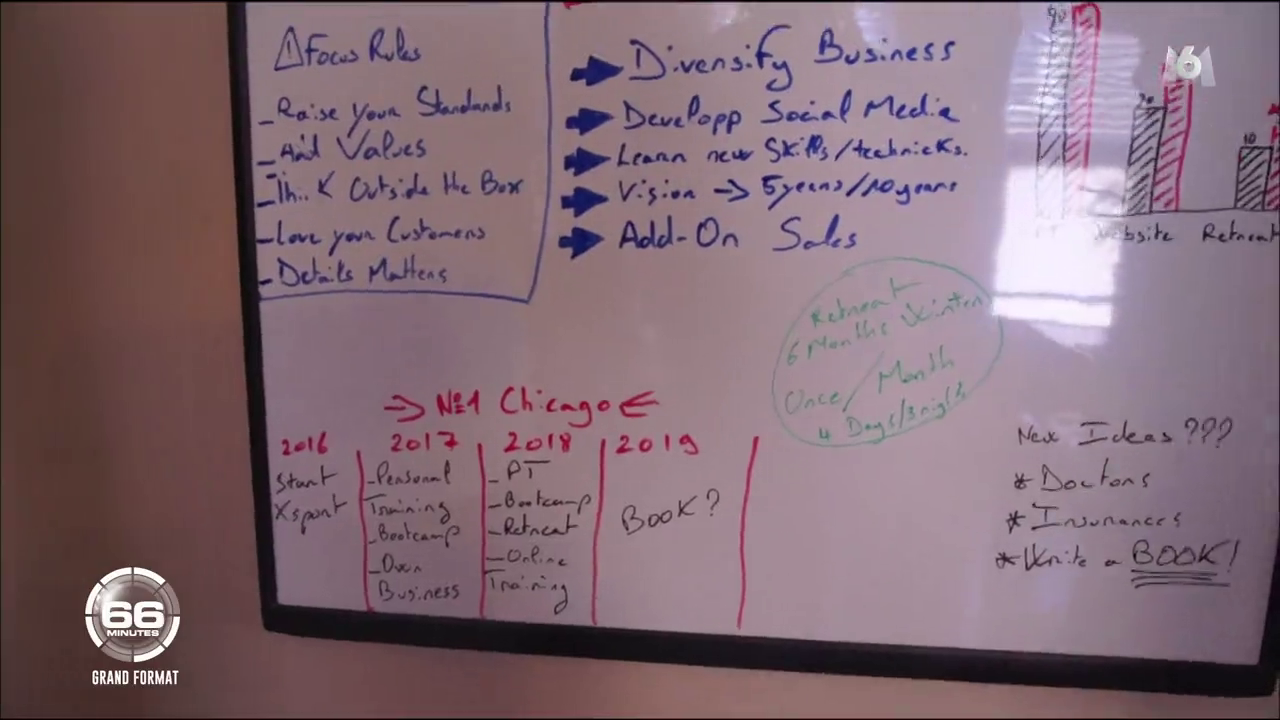 ⚠ Focus Rules
- Raise your Standards
- And Values
- Think Outside the Box
- Love your Customers
- Details Matters
➡ Diversify Business
➡ Developp Social Media
➡ Learn new Skills/technicks.
➡ Vision → 5years/10years
➡ Add-On Sales
90
30
10
Website Retreat
M6
Retreat
6 Months Winter
Once / Month
4 Days/3night
→ N°1 Chicago ←
2016
Start
Xsport
2017
- Personal
Training
- Bootcamp
- Own
Business
2018
- PT
- Bootcamp
- Retreat
- Online
Training
2019
BOOK?
New Ideas ???
* Doctors
* Insurances
* Write a BOOK!
66
MINUTES
GRAND FORMAT